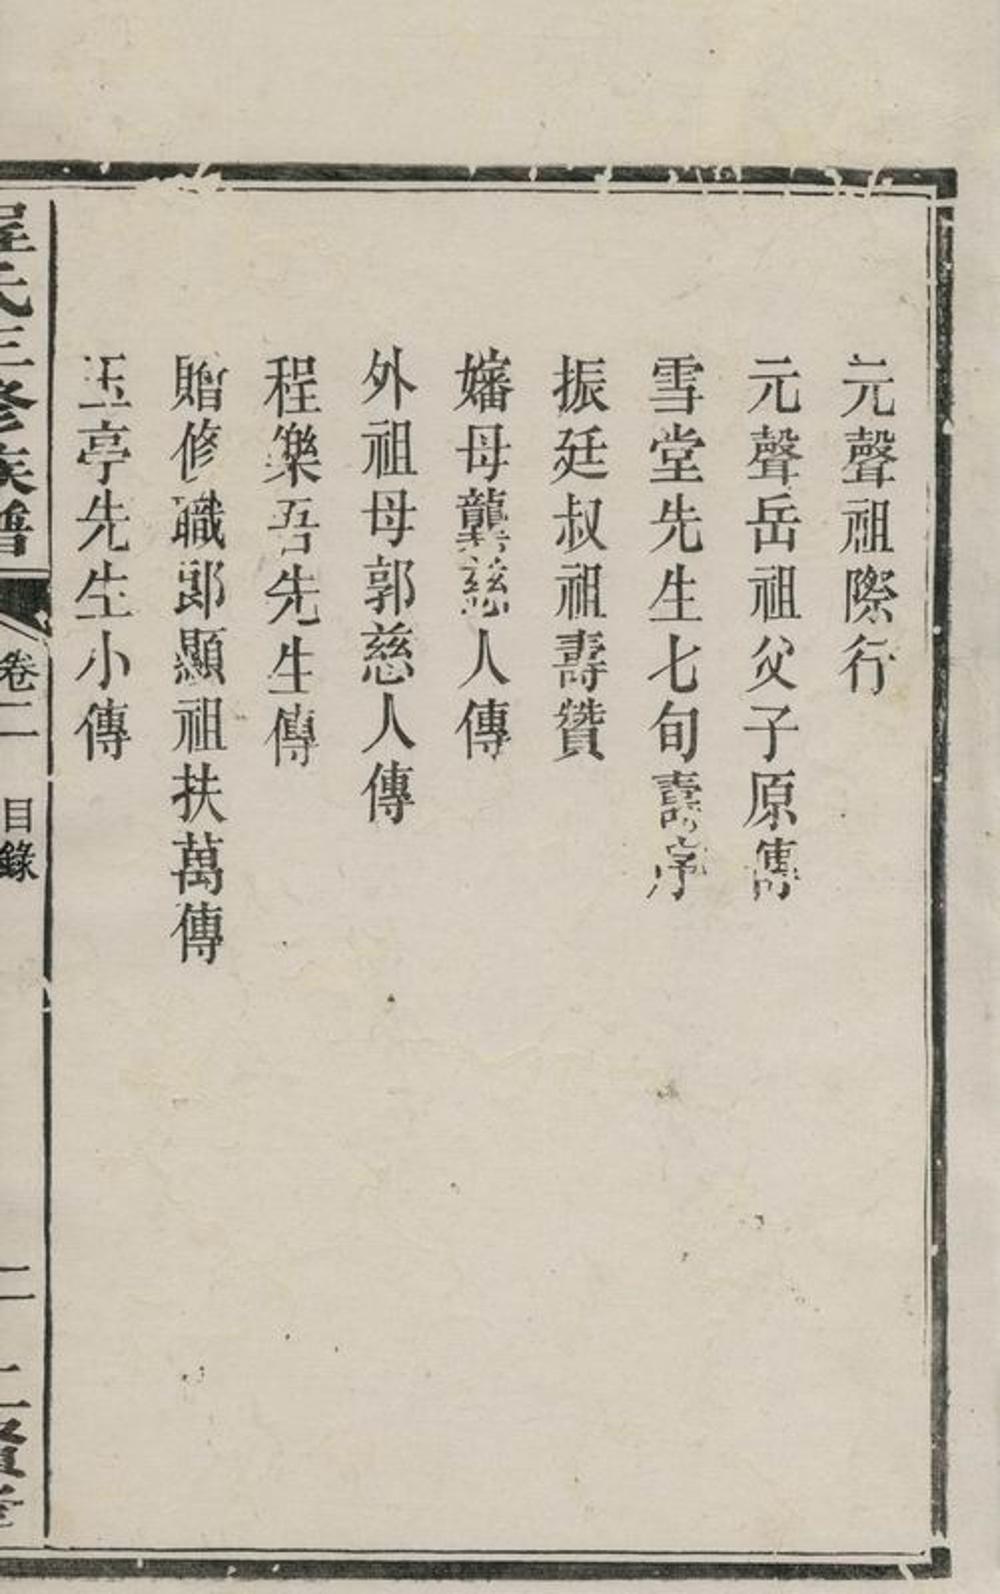 元聲祖際行
元聲岳祖父子原傳
雪堂先生七旬壽序
振廷叔祖壽贊
嬸母龔慈人傳
外祖母郭慈人傳
程樂吾先生傳
贈修職郎顯祖扶萬傳
玉亭先生小傳
程氏三修族譜
卷二
目錄
二
二賢堂